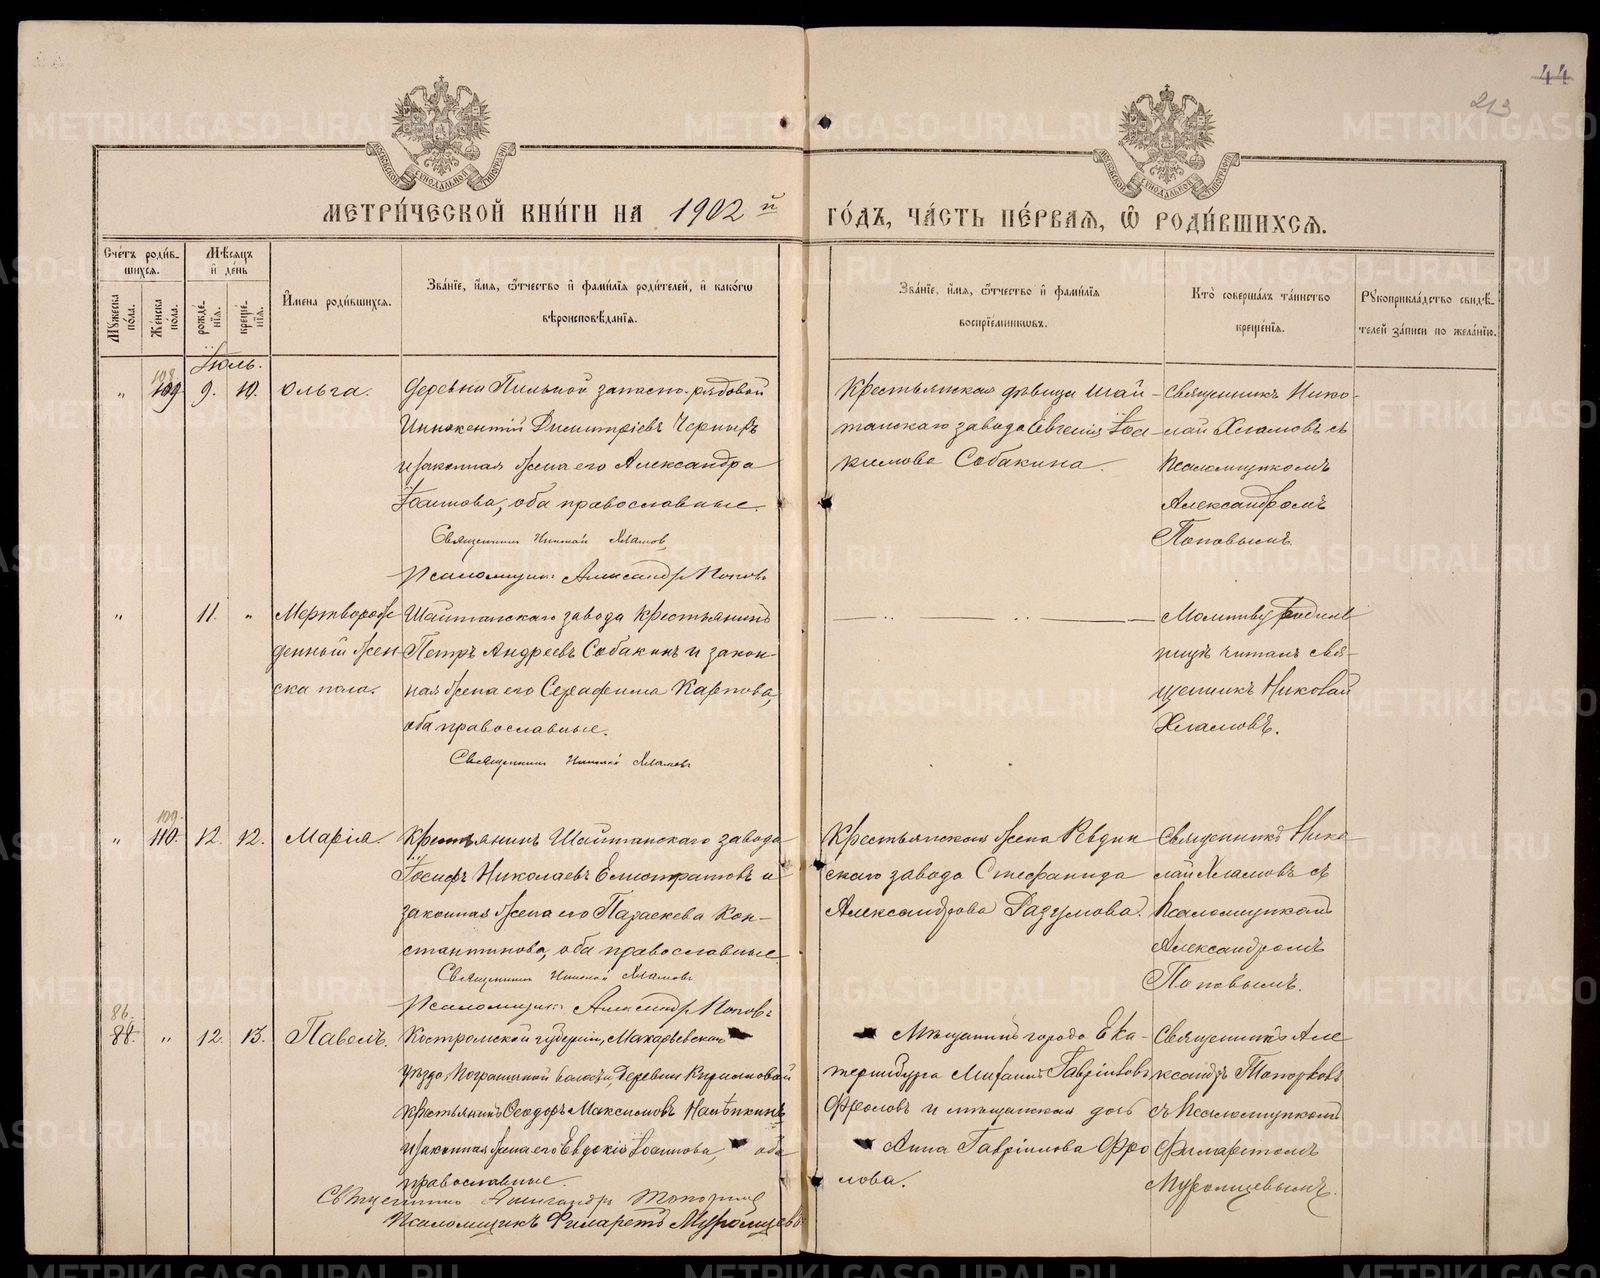 44
213
МЕТРИ́ЧЕСКОЙ КНИ́ГИ НА 1902 й ГО́ДЪ, ЧА́СТЬ ПЕ́РВАЯ, Ѡ РОДИ́ВШИХСЯ.
Сче́тъ роди́вшихся.
Мѣ́сяцъ и де́нь
Му́жеска по́ла.
Же́нска по́ла.
рожде́нїя.
креще́нїя.
И́мена роди́вшихся.
Зва́нїе, и́мя, ѻ́тчество и фами́лїя роди́телей, и како́гѡ
вѣроисповѣ́данїя.
Зва́нїе, и́мя, ѻ́тчество и фами́лїя
воспрїе́мниковъ.
Кто̀ соверша́лъ та́инство
креще́нїя.
Рукоприкла́дство свидѣ́-
телей за́писи по жела́нїю.
Іюль.
108
" 109 9. 10. Ольга.
Деревни Пильной запасно-рядовой
Иннокентій Димитріевъ Черныхъ
и законная жена его Александра
Іоаннова, оба православные.
Священникъ Николай Хламов
Псаломщикъ Александръ Поповъ
Крестьянская дѣвица Шай-
танскаго завода Евгенія Іоа-
кимова Собакина.
Священникъ Нико-
лай Хламовъ съ
псаломщикомъ
Александромъ
Поповымъ.
" 11. " Мертворож-
денный жен-
ска пола.
Шайтанскаго завода крестьянинъ
Петръ Андреевъ Собакинъ и закон-
ная жена его Серафима Карпова,
оба православные.
Священникъ Николай Хламовъ
Молитву родиль
ницѣ читалъ свя-
щенникъ Николай
Хламовъ.
109.
" 110. 12. 12. Марія.
Крестьянинъ Шайтанскаго завода
Іосифъ Николаевъ Елистратовъ и
законная жена его Параскева Кон-
стантинова, оба православные.
Священникъ Николай Хламовъ
Псаломщикъ Александръ Поповъ
Крестьянская жена Ревдин
скаго завода Стефанида
Александрова Разумова.
Священникъ Нико-
лай Хламовъ съ
псаломщикомъ
Александромъ
Поповымъ.
86.
88. " 12. 13. Павелъ.
Костромской губерніи, Макарьевскаго
уѣзда, волости, деревни
крестьянинъ Ѳеодоръ Максимовъ
и законная жена его Евдокія Іоаннова, оба
православные.
Священникъ Александръ Топорковъ
Псаломщикъ Филаретъ Муромцевъ
Мѣщанинъ города Ека-
теринбурга Михаилъ Гавріиловъ
Фроловъ и мѣщанская дочь
Анна Гавріилова Фро
лова.
Священникъ Але
ксандръ Топорковъ
съ псаломщикомъ
Филаретомъ
Муромцевымъ.